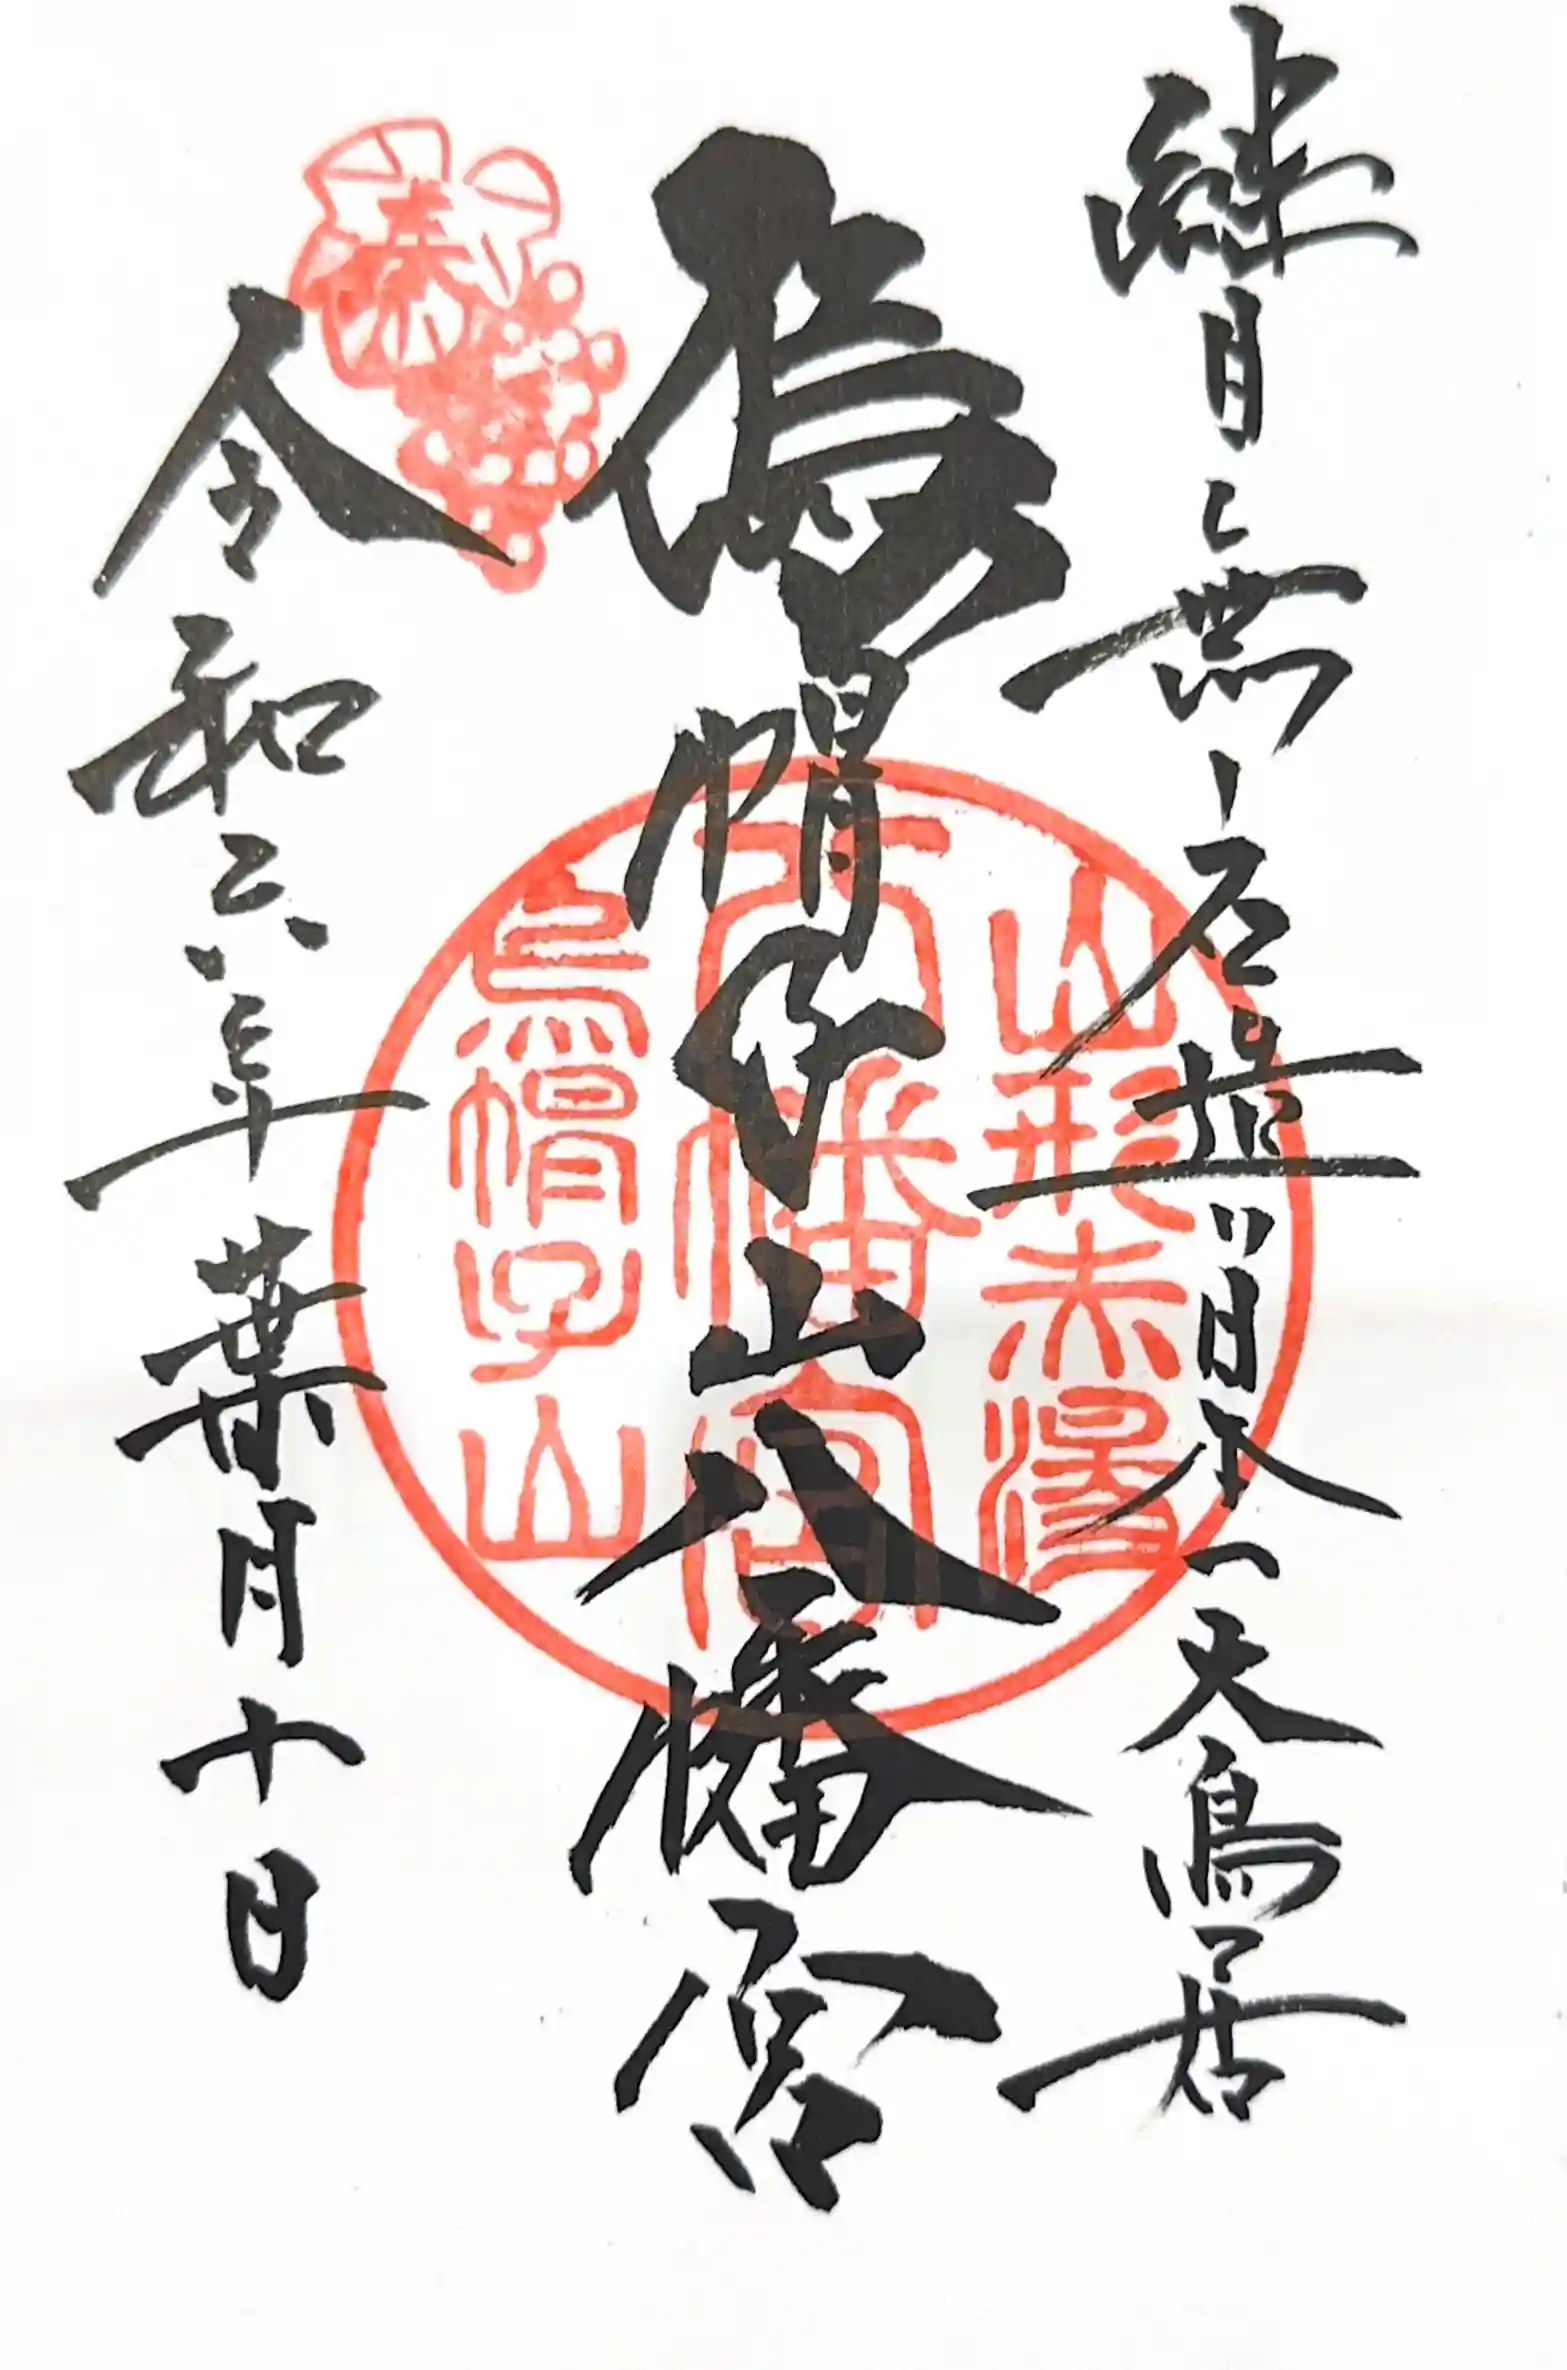 継目ニ無シ石造リ日本一大鳥居
烏帽子山八幡宮
令和六年葉月十日
奉拝
山形赤湯
八幡宮
烏帽子山